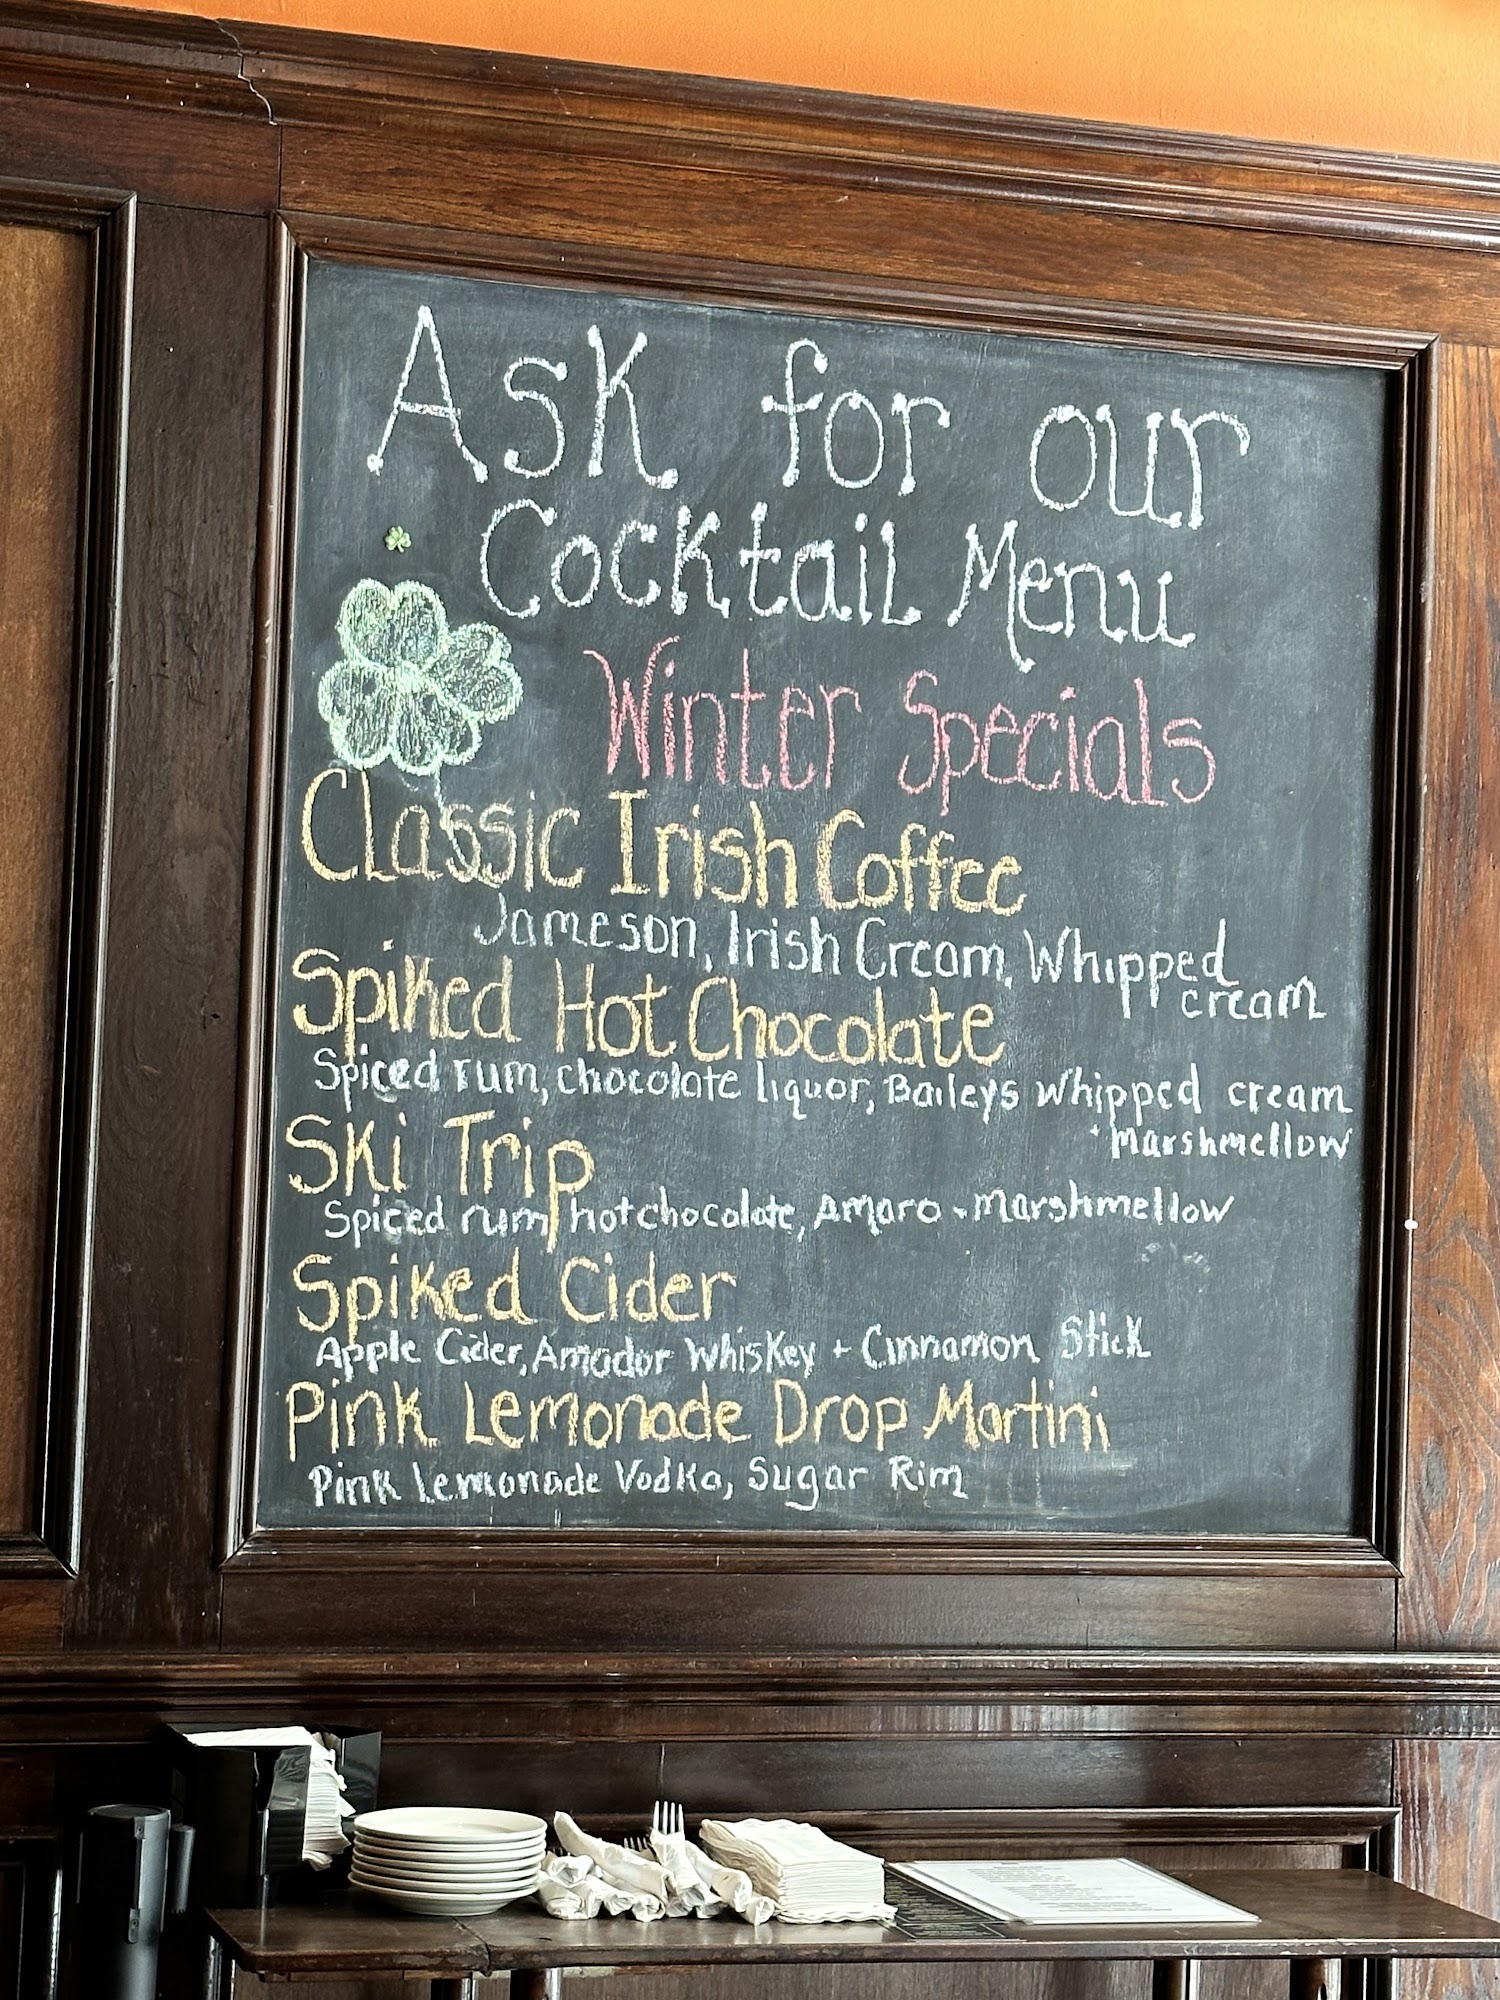 Ask for our
Cocktail Menu
Winter Specials
Classic Irish Coffee
Jameson, Irish Cream, Whipped
cream
Spiked Hot Chocolate
Spiced rum, chocolate liquor, Baileys whipped cream
+ marshmellow
Ski Trip
Spiced rum, hot chocolate, Amaro + marshmellow
Spiked Cider
Apple Cider, Amador Whiskey + Cinnamon Stick
Pink Lemonade Drop Martini
Pink Lemonade Vodka, Sugar Rim